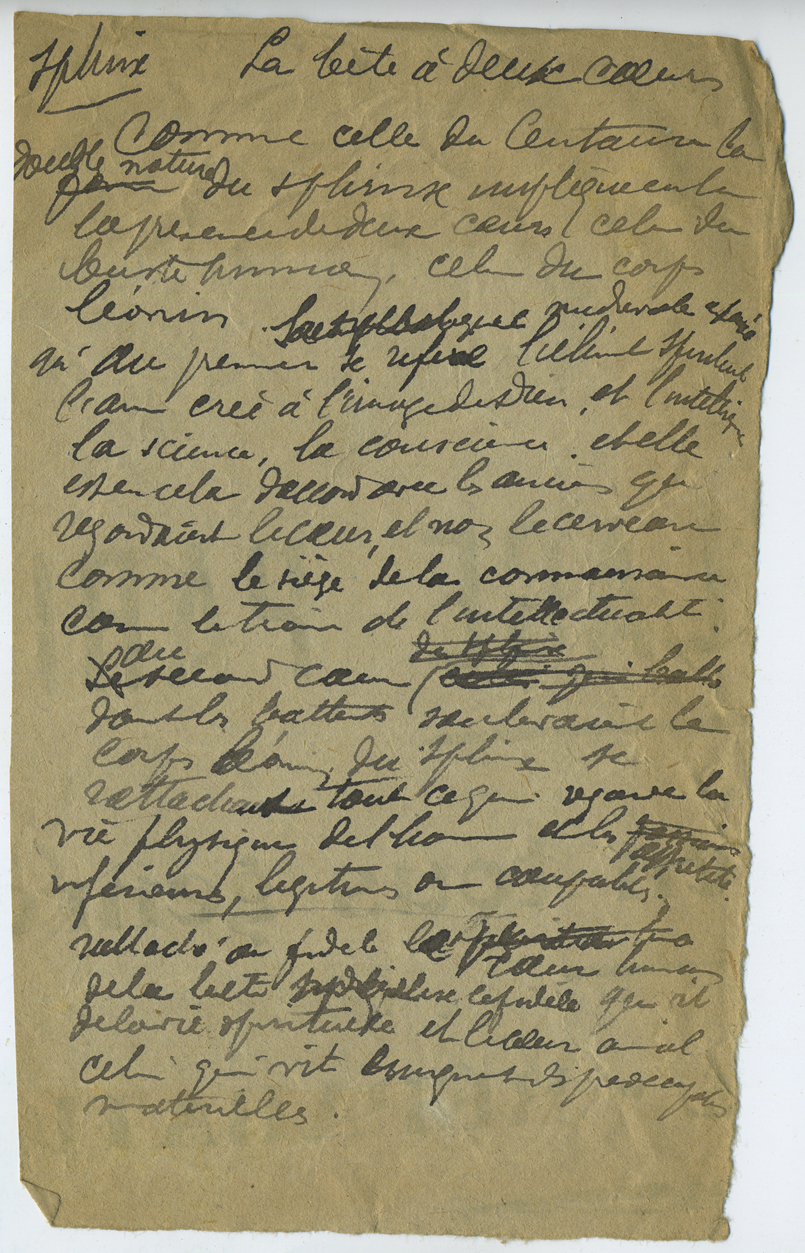 Sphinx La bête à deux cœurs
Comme celle du Centaure la
double nature du sphinx
la présence de deux cœurs, celui du
buste humain, celui du corps
léonin. médiévale
qu'au premier se réfère l'élément spirituel
l'âme créé à l'image de Dieu, et
la science, la conscience. et elle
est en cela d'accord avec les anciens qui
regardaient le cœur, et non le cerveau
comme le siège de la connaissance
de l'intellectualité.
au
second cœur
dont les soulevaient le
corps léonin du sphinx se
tout ce qui regarde la
vie physique de l'homme et les
appétits
inférieurs, légitimes ou coupables.
au fidèle
cœur humain
de la bête le fidèle qui vit
de la vie spirituelle et le cœur animal
celui qui vit des préoccupations
matérielles.